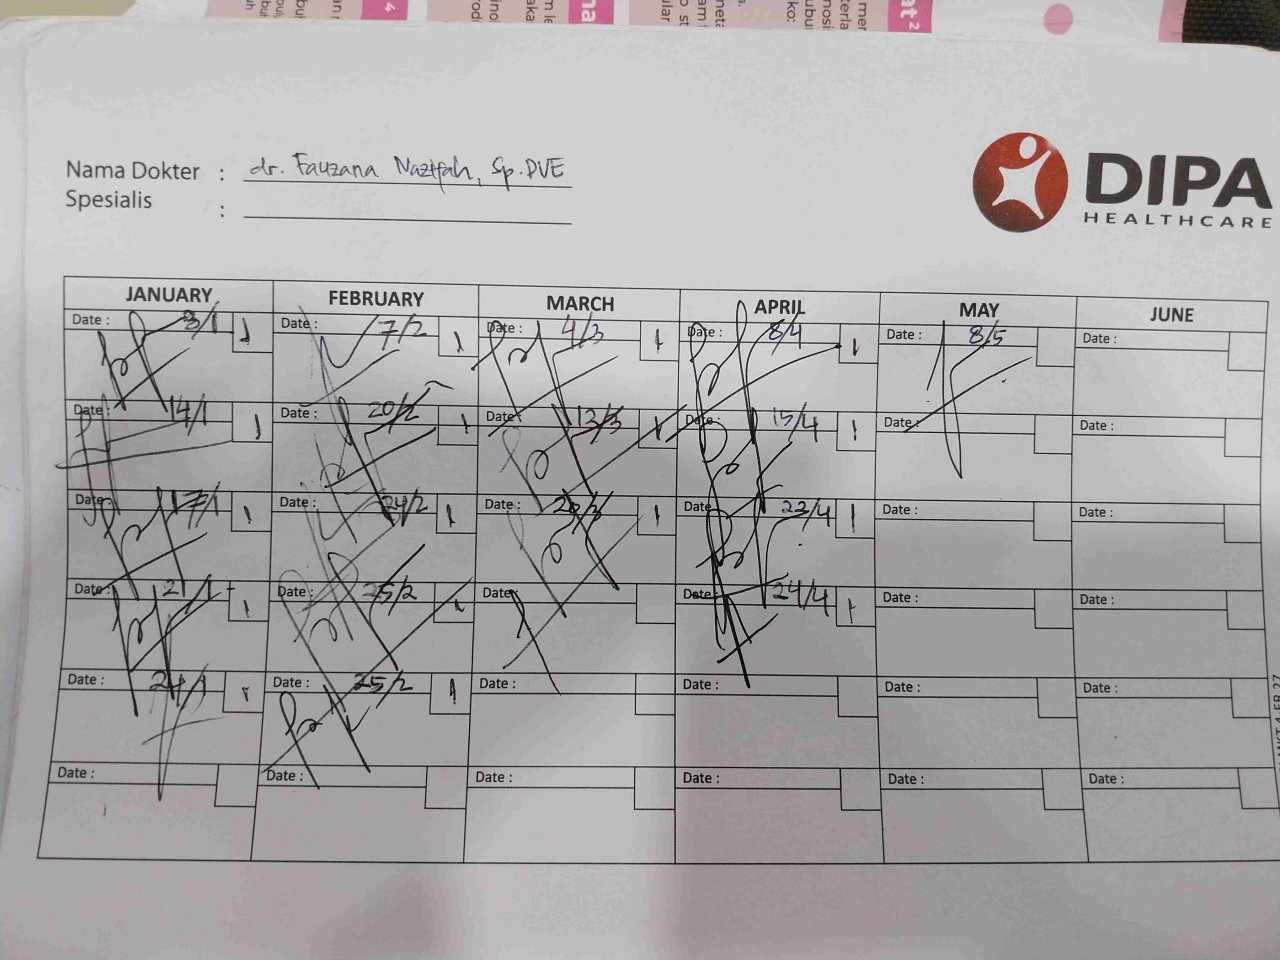 Nama Dokter : dr. Fauzana Nazifah, Sp.DVE
Spesialis :
DIPA
HEALTHCARE
JANUARY FEBRUARY MARCH APRIL MAY JUNE
Date : 3/1 1 Date : 7/2 1 Date : 4/3 1 Date : 8/4 1 Date : 8/5 Date :
Date : 14/1 1 Date : 20/2 1 Date : 13/3 1 Date : 15/4 1 Date : Date :
Date : 17/1 1 Date : 24/2 1 Date : 1 Date : 1 Date : Date :
Date : 21/1 1 Date : 25/2 1 Date : Date : 24/4 1 Date : Date :
Date : 24/1 1 Date : 25/2 1 Date : Date : Date : Date :
Date : Date : Date : Date : Date : Date :